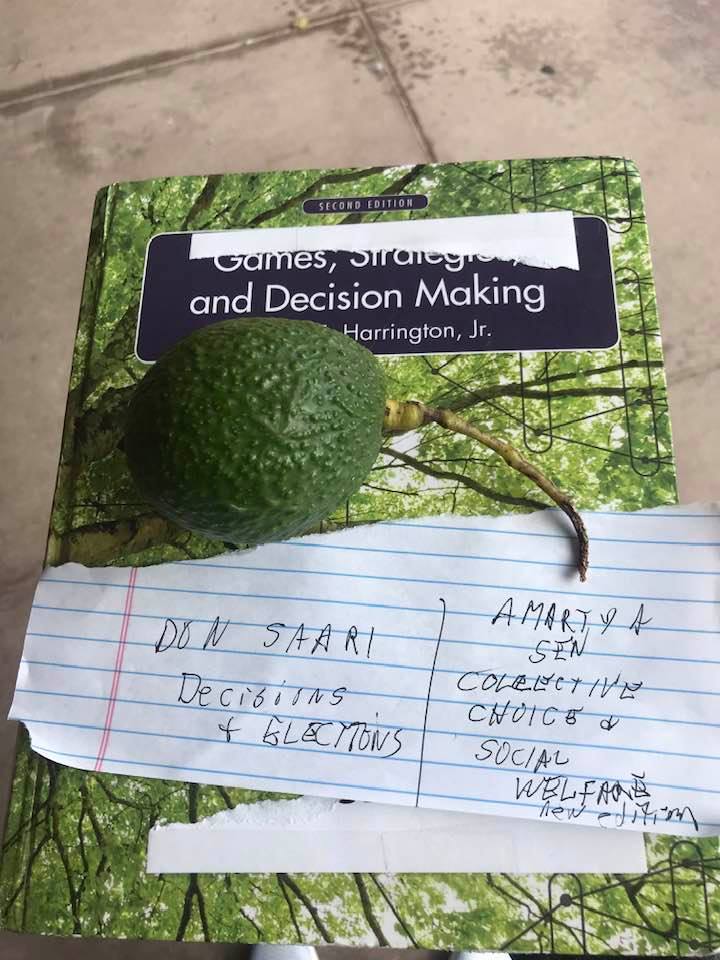 SECOND EDITION
Games, Strategies,
and Decision Making
Harrington, Jr.
DON SAARI
Decisions
& ELECTIONS
AMARTYA
SEN
COLLECTIVE
CHOICE &
SOCIAL
WELFARE
new edition